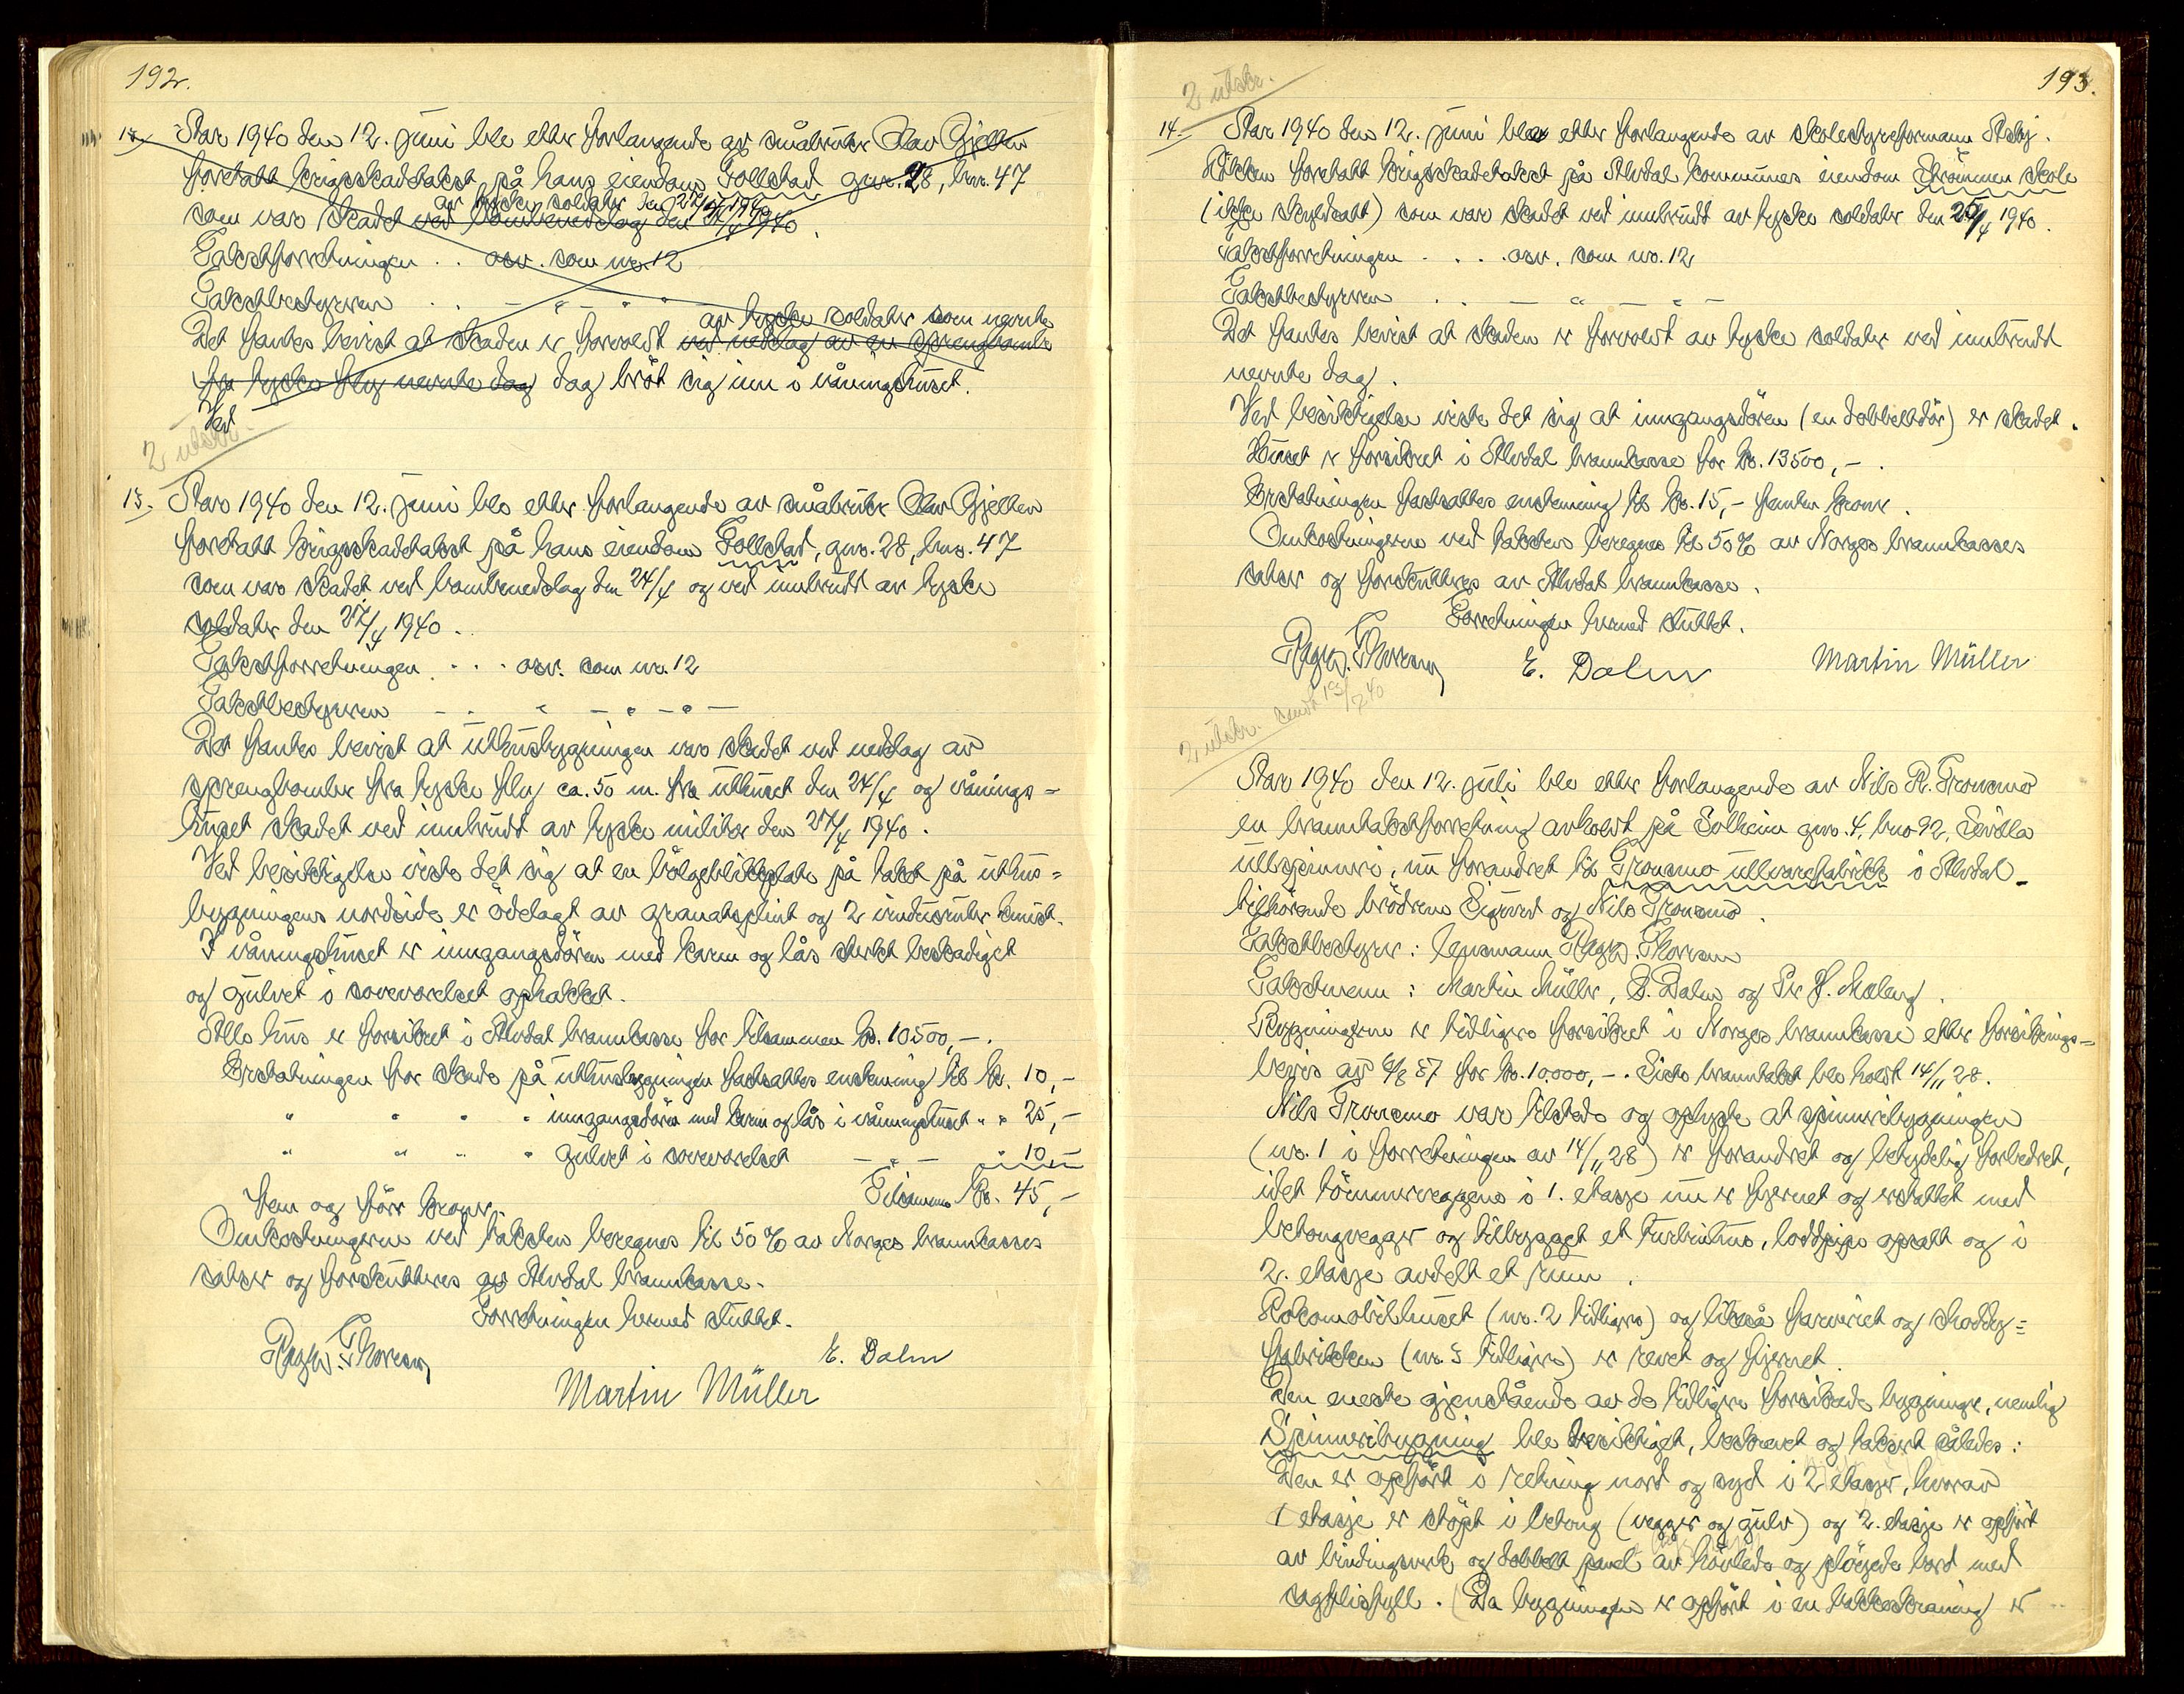 192.
13. År 1940 den 12. juni ble etter forlangende av småbruker Olav Gjelten
foretatt krigsskadetakst på hans eiendom Tollstad gnr. 28, bnr. 47
av tyske soldater den 27/4 1940
som var skadet ved bombenedslag den 27/4 1940.
Takstforretningen . . osv. som nr. 12
Takstbestyreren . . — " — " "
av tyske soldater som nevnte
Det fantes bevist at skaden er forvoldt ved nedslag av en sprengbombe
fra tyske fly nevnte dag dag brøt sig inn i våningshuset.
Ved
2 utskr.
13. År 1940 den 12. juni ble etter forlangende av småbruker Olav Gjelten
foretatt krigsskadetakst på hans eiendom Tollstad, gnr. 28, bnr. 47
som var skadet ved bombenedslag den 24/4 og ved innbrudd av tyske
soldater den 27/4 1940.
Takstforretningen . . . osv. som nr. 12
Takstbestyreren — " " — " — " —
Det fantes bevist at uthusbygningen var skadet ved nedslag av
sprengbomber fra tyske fly ca. 50 m. fra uthuset den 24/4 og vånings=
huset skadet ved innbrudd av tyske militær den 27/4 1940.
Ved besiktigelse viste det sig at en bølgeblikkplate på taket på uthus=
bygningens nordside er ødelagt av granatsplint og 2 vindusruter knust.
I våningshuset er inngangsdøren med karm og lås sterkt beskadiget
og gulvet i soveværelset ophakket.
Alle hus er forsikret i Alvdal brannkasse for tilsammen kr. 10500,-.
Erstatningen for skade på uthusbygningen fastsattes enstemmig til kr. 10,-
" " " " inngangsdøren med karm og lås i våningshuset " " 25,-
" " " " gulvet i soveværelset — " — " 10,-
Tilsammen kr. 45,-
fem og førr kroner.
Omkostningene ved taksten beregnes til 50% av Norges brannkasses
satser og forskutteres av Alvdal brannkasse.
Forretningen hermed sluttet.
Ragv. Thoresen
E. Dalen
Martin Müller
193.
2 utskr.
14. År 1940 den 12. juni ble etter forlangende av skolestyreformann Asbj.
foretatt krigsskadetakst på Alvdal kommunes eiendom Strømmen skole
(ikke skyldsatt) som var skadet ved innbrudd av tyske soldater den 25/4 1940.
Takstforretningen . . . . osv. som nr. 12
Takstbestyreren . . — " — " —
Det fantes bevist at skaden er forvoldt av tyske soldater ved innbrudd
nevnte dag.
Ved besiktigelse viste det sig at inngangsdøren (en dobbeltdør) er skadet.
Huset er forsikret i Alvdal brannkasse for kr. 13500,-.
Erstatningen fastsattes enstemmig til kr. 15,- femten kroner.
Omkostningene ved taksten beregnes til 50% av Norges brannkasses
satser og forskutteres av Alvdal brannkasse.
Forretningen hermed sluttet.
Ragv. Thoresen E. Dalen Martin Müller
2 utskr. sendt 13/7 40
År 1940 den 12. juli ble etter forlangende av Nils R. Tronsmo
en branntakstforretning avholdt på Solheim gnr. 4, bnr 92,
ullspinneri, nu forandret til Tronsmo ullvarefabrikk i Alvdal
tilhørende brødrene Sigurd og Nils Tronsmo.
Takstbestyrer: lensmann Ragv. Thoresen
Takstmenn: Martin Müller, E. Dalen og Per J. Moleng.
Bygningene er tidligere forsikret i Norges brannkasse etter forsikrings=
bevis av 6/8 37 for kr. 10.000,-. Siste branntakst ble holdt 14/11 28.
Nils Tronsmo var tilstede og oplyste at spinneribygningen
(nr. 1 i forretningen av 14/11 28) er forandret og betydelig forbedret,
idet tømmerveggene i 1. etasje nu er fjernet og erstattet med
betongvegger og tilbygget et turbinhus, loddpipe opsatt og i
2. etasje avdelt et rum.
Lokomobilhuset (nr. 2 tidligere) og likeså farveriet og shoddy=
fabrikken (nr. 3 tidligere) er revet og fjernet.
Den eneste gjenstående av de tidligere forsikrede bygninger, nemlig
Spinneribygning ble besiktiget, beskrevet og taksert således:
Den er opført i retning nord og syd i 2 etasjer, hvorav
1 etasje er støpt i betong (vegger og gulv) og 2. etasje er opført
av bindingsverk og dobbelt panel av høvlede og pløyede bord med
sagflisfyll. (Da bygningen er opført i en bakkeskråning er